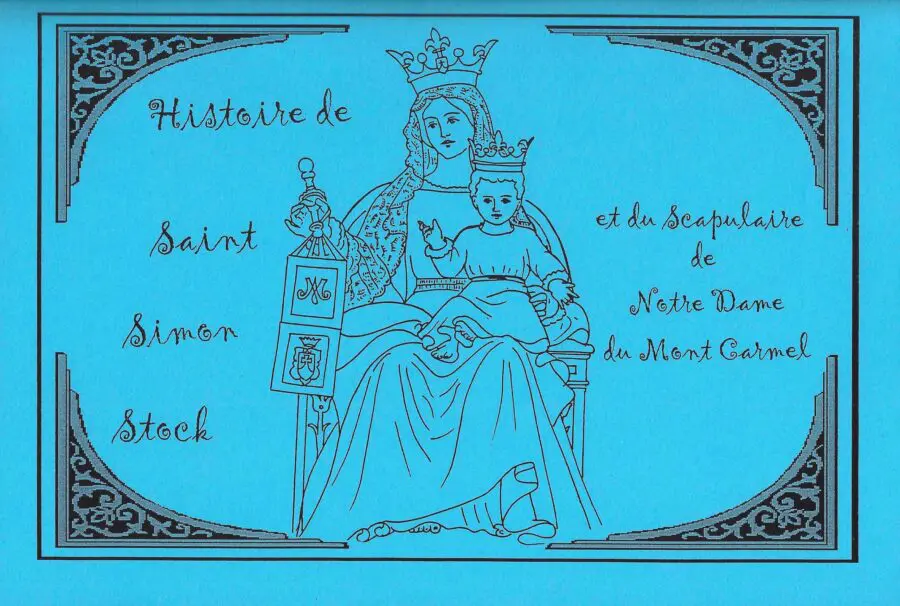 Histoire de
Saint
Simon
Stock
et du Scapulaire
de
Notre Dame
du Mont Carmel